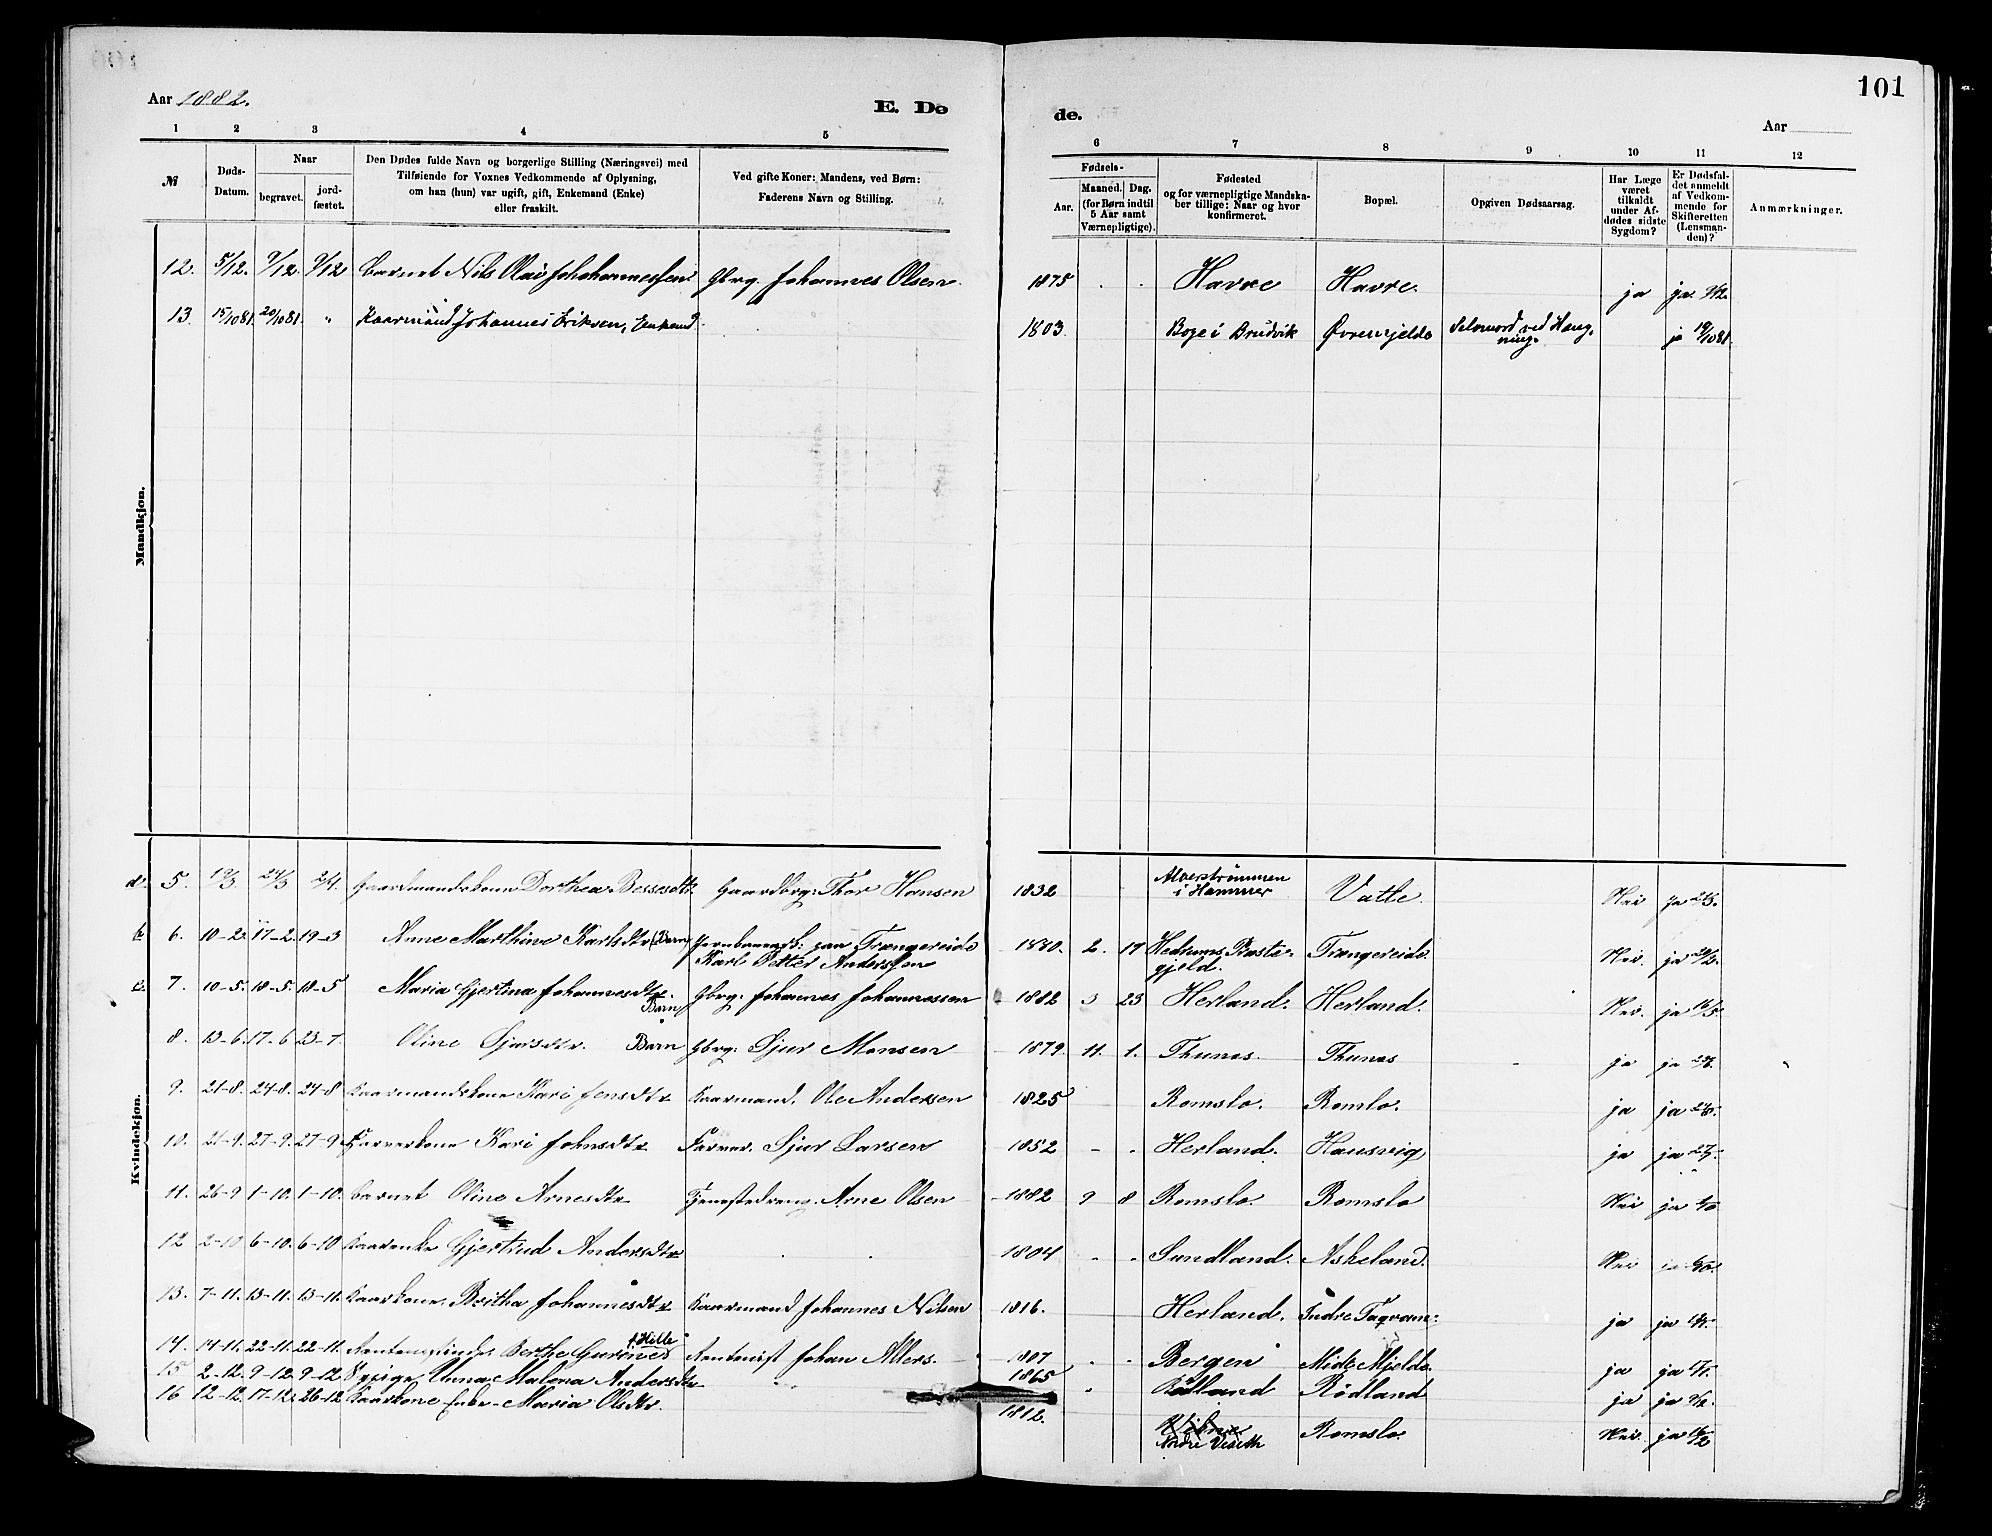 Aar 1882.
E. Dø
de.
101
Aar
1 2 3 4 5
6 7 8 9 10 11 12
№
Døds-
Datum.
Naar
begravet.
jord-
fæstet.
Den Dødes fulde Navn og borgerlige Stilling (Næringsvei) med
Tilføiende for Voxnes Vedkommende af Oplysning,
om han (hun) var ugift, gift, Enkemand (Enke)
eller fraskilt.
Ved gifte Koner: Mandens, ved Børn:
Faderens Navn og Stilling.
Fødsels-
Aar.
Maaned. Dag.
(for Børn indtil
5 Aar samt
Værnepligtige).
Fødested
og for værnepligtige Mandska-
ber tillige: Naar og hvor
konfirmeret.
Bopæl.
Opgiven Dødsaarsag.
Har Læge
været
tilkaldt
under Af-
dødes sidste
Sygdom?
Er Dødsfal-
det anmeldt
af Vedkom-
mende for
Skifteretten
(Lensman-
den)?
Anmærkninger.
Mandkjøn.
12. 5/12. 9/12. 9/12 Barnet Nils Olai Johohannessen Gbrg. Johannes Olsen. 1875 Havre Havre. ja ja 9/12.
13. 15/10 81. 20/10 81. " Kaarmand Johannes Eriksen, Enkemd. 1803. Boge i Brudvik Øvre Mjelde Selvmord ved Hæng-
ning. ja 19/10 81.
Kvindekjøn.
5. 19/3. 24/3 2/4. Gaardmandskone Dorthea Bessesdtr. Gaardbrg: Thor Hansen 1832 Alverstrømmen
i Hammer Vatle. Nei ja
6. 10-2. 17-2. 19-3 Anne Marthine Karlsdtr (Barn) paa Trængereide
Karl Petter Anderssen 1880. 2. 17 Hedrums Præste-
gjeld. Trængereide. Nei. ja
7. 10-5. 18-5. 18-5 Maria Gjertina Johannesdtr.
Barn Gbrg: Johannes Johannessen 1882 3 23 Herland. Herland. Nei. ja 16/5.
8. 13-6. 17-6 23-7. Oline Sjursdtr. Barn Gbrg: Sjur Monsen 1879. 11. 1. Thunes. Thunes ja ja
9. 21-8. 24-8. 24-8 Kaarmandskone Kari Jensdtr Kaarmand. Ole Andersen 1825 Romslo. Romlo. ja ja
10. 21-9. 27-9. 27-9 Farverkone Kari Johnsdtr Farver. Sjur Larsen 1852 - - Herland. Hausvig ja ja
11. 26-9 1-10. 1-10. Barnet Oline Arnesdtr Tjenestedreng. Arne Olsen 1882 9 8 Romslo. Romslo Nei ja
12 2-10 6-10. 6-10 Kaarenke Gjertrud Andersdtr 1804 Sundland. Askeland. Nei ja
13. 7-11. 13-11. 13-11. Kaarkone. Britha Johannesdtr Kaarmand Johannes Nilsen 1816. Herland. Indre Taqvam. ja ja
14. 14-11. 22-11. 22-11. Berthe f. Hille Rentenist Johan Allers. 1807 Bergen Midt Mjelde. ja ja
15 2-12. 9-12. 9-12 Anna Malena Andersdtr 1865 Rødland Rødland ja ja
16 12-12. 17-12. 26-12 Kaarkone Enke Maria Olsdtr. 1812. Nordre Viseth Romslo. Nei. ja